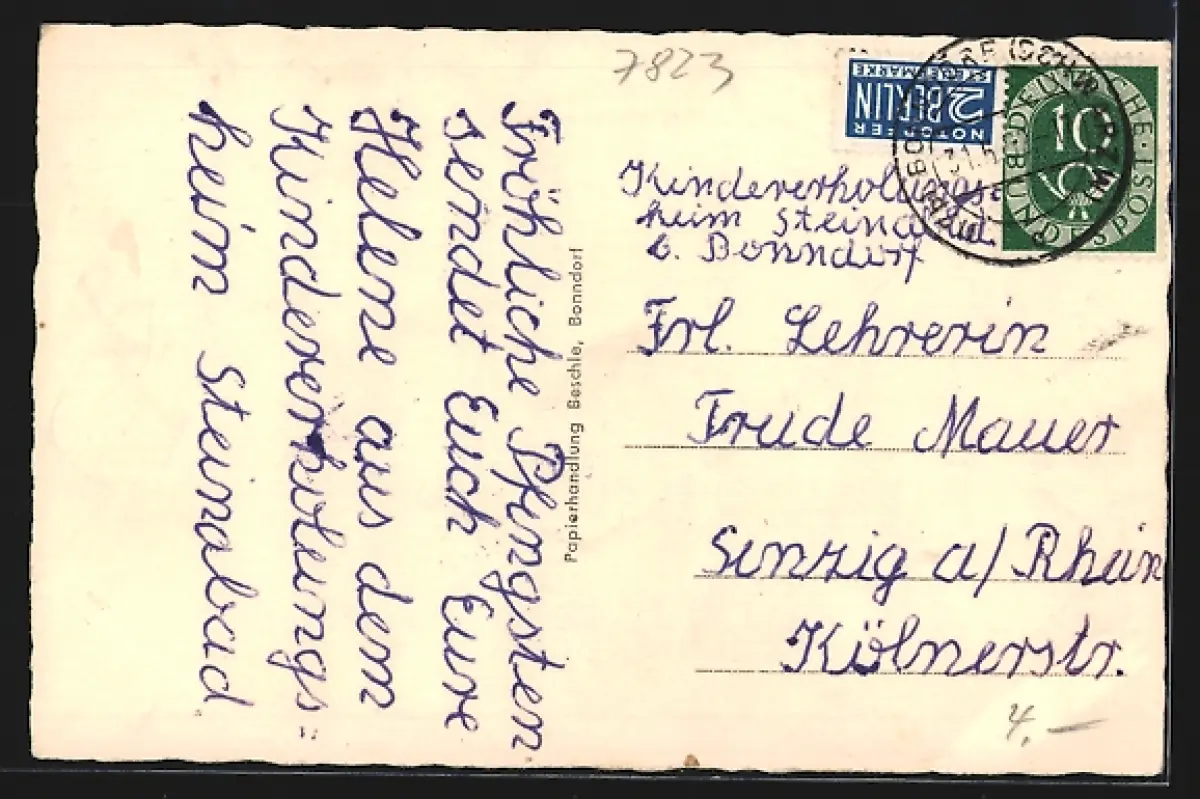 7823
Fröhliche Pfingsten
sendet Euch Eure
Helene aus dem
Kindererholungs=
heim Steinabad
Papierhandlung Beschle, Bonndorf
2 BERLIN
NOTOPFER
STEUERMARKE
10
DEUTSCHE·BUNDESPOST
Kindererholungs-
heim Steinabad
b. Bonndorf
Frl. Lehrerin
Trude Mauer
Sinzig a/Rhein
Kölnerstr.
4,—